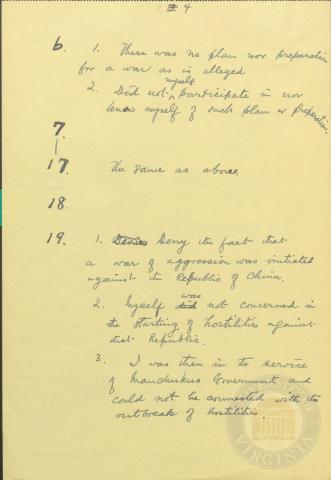 # 4
6. 1. There was no plan nor preparation
for a war as is alleged
myself
2. Did not ^ participate in nor
know myself of such plan or preparation.
7.
|
17. The same as above.
18.
19. 1. Denies Deny the fact that
a war of aggression was initiated
against the Republic of China.
was
2. Myself did not concerned in
the starting of hostilities against
that Republic.
3. I was then in to service
of Manchukuo Government and
could not be connected with the
outbreak of hostilities.
VIRGINIA